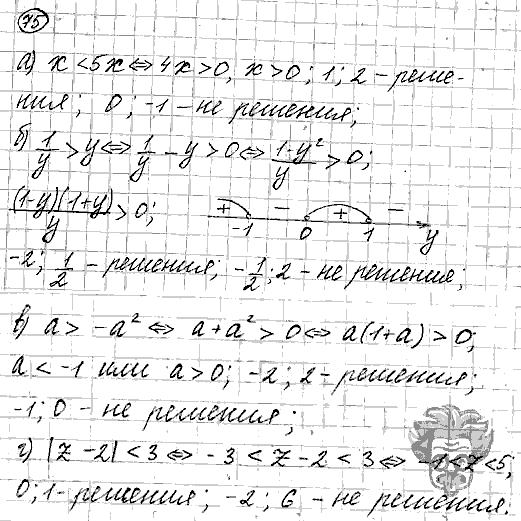 75
а) x < 5x ⇔ 4x > 0, x > 0; 1; 2 - реше-
ния; 0; -1 - не решения;
б) 1/y > y ⇔ 1/y - y > 0 ⇔ (1-y²)/y > 0;
(1-y)(1+y)/y > 0; + - + - -1 0 1 y
-2; 1/2 - решения; -1/2; 2 - не решения;
в) a > -a² ⇔ a + a² > 0 ⇔ a(1+a) > 0;
a < -1 или a > 0; -2; 2 - решения;
-1; 0 - не решения;
г) |z - 2| < 3 ⇔ -3 < z - 2 < 3 ⇔ -1 < z < 5;
0; 1 - решения; -2; 6 - не решения.